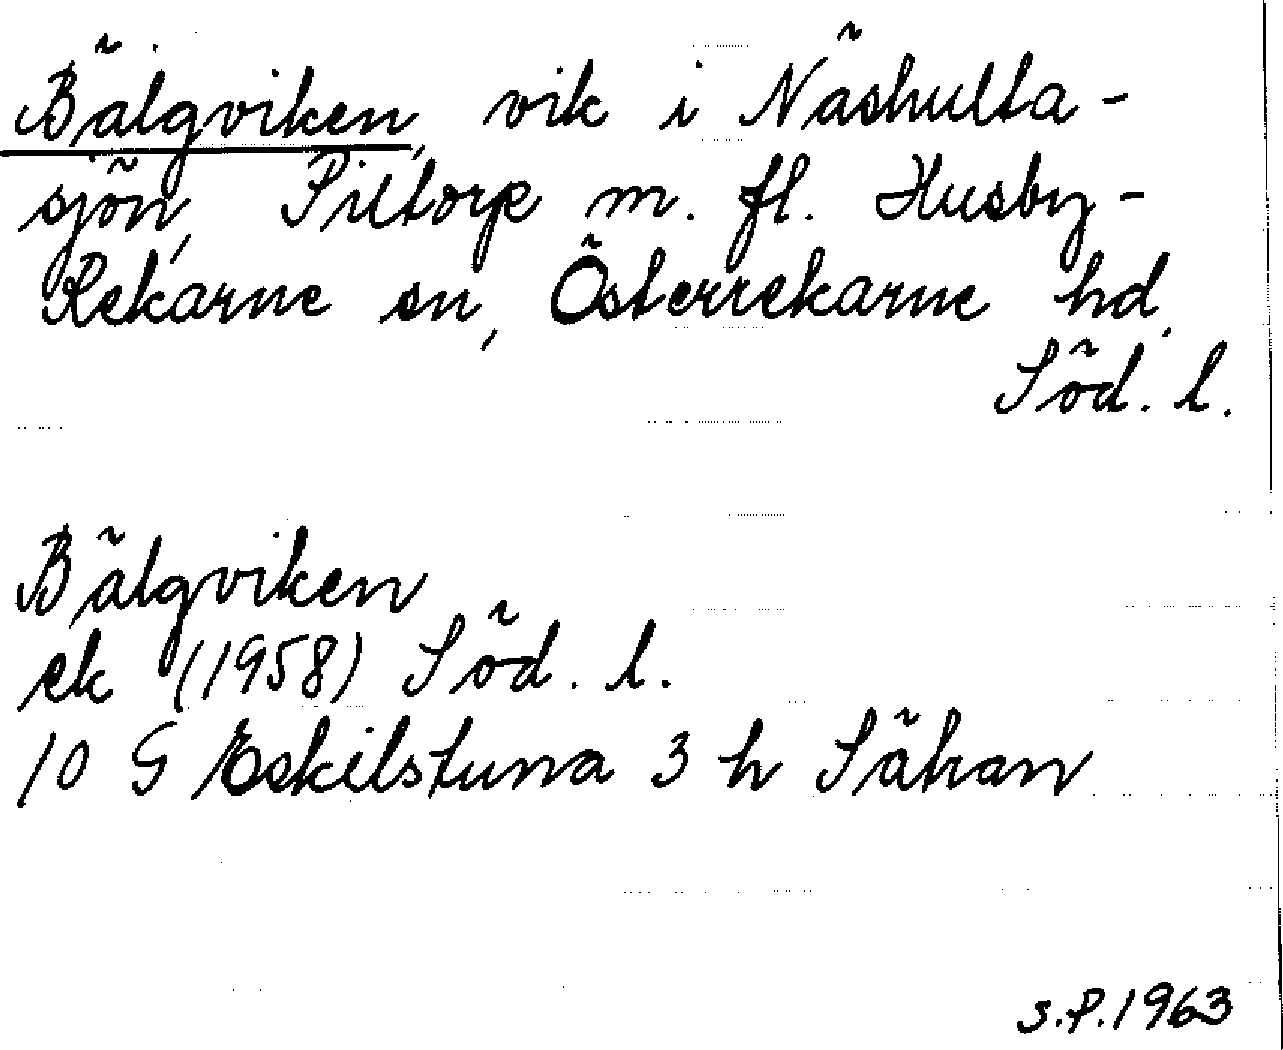 Bälgviken, vik i Näshulta-
sjön, Piltorp m. fl. Husby-
Rekarne sn, Österrekarne hd,
Söd. l.
Bälgviken
ek (1958) Söd. l.
10 G Eskilstuna 3 h
s.P.1963